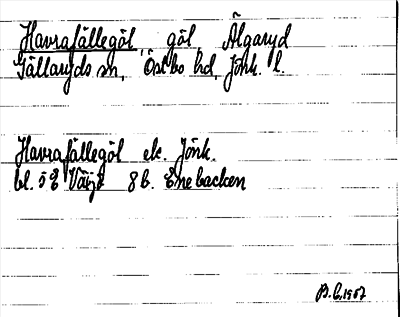 Havrafällegöl, göl, Älgaryd
Gällaryds sn, Östbo hd, Jönk. l.
Havrafällegöl ek. Jönk.
bl. 5 E Växjö 8 b. Enebacken
B.C. 1967